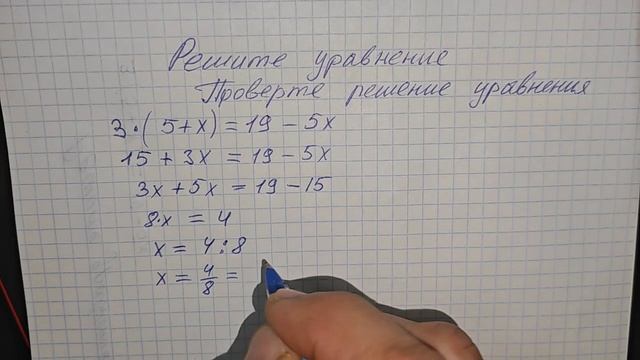 Решите уравнение
Проверте решение уравнения
3·(5+x)=19-5x
15+3x=19-5x
3x+5x=19-15
8·x=4
x=4:8
x=4/8=